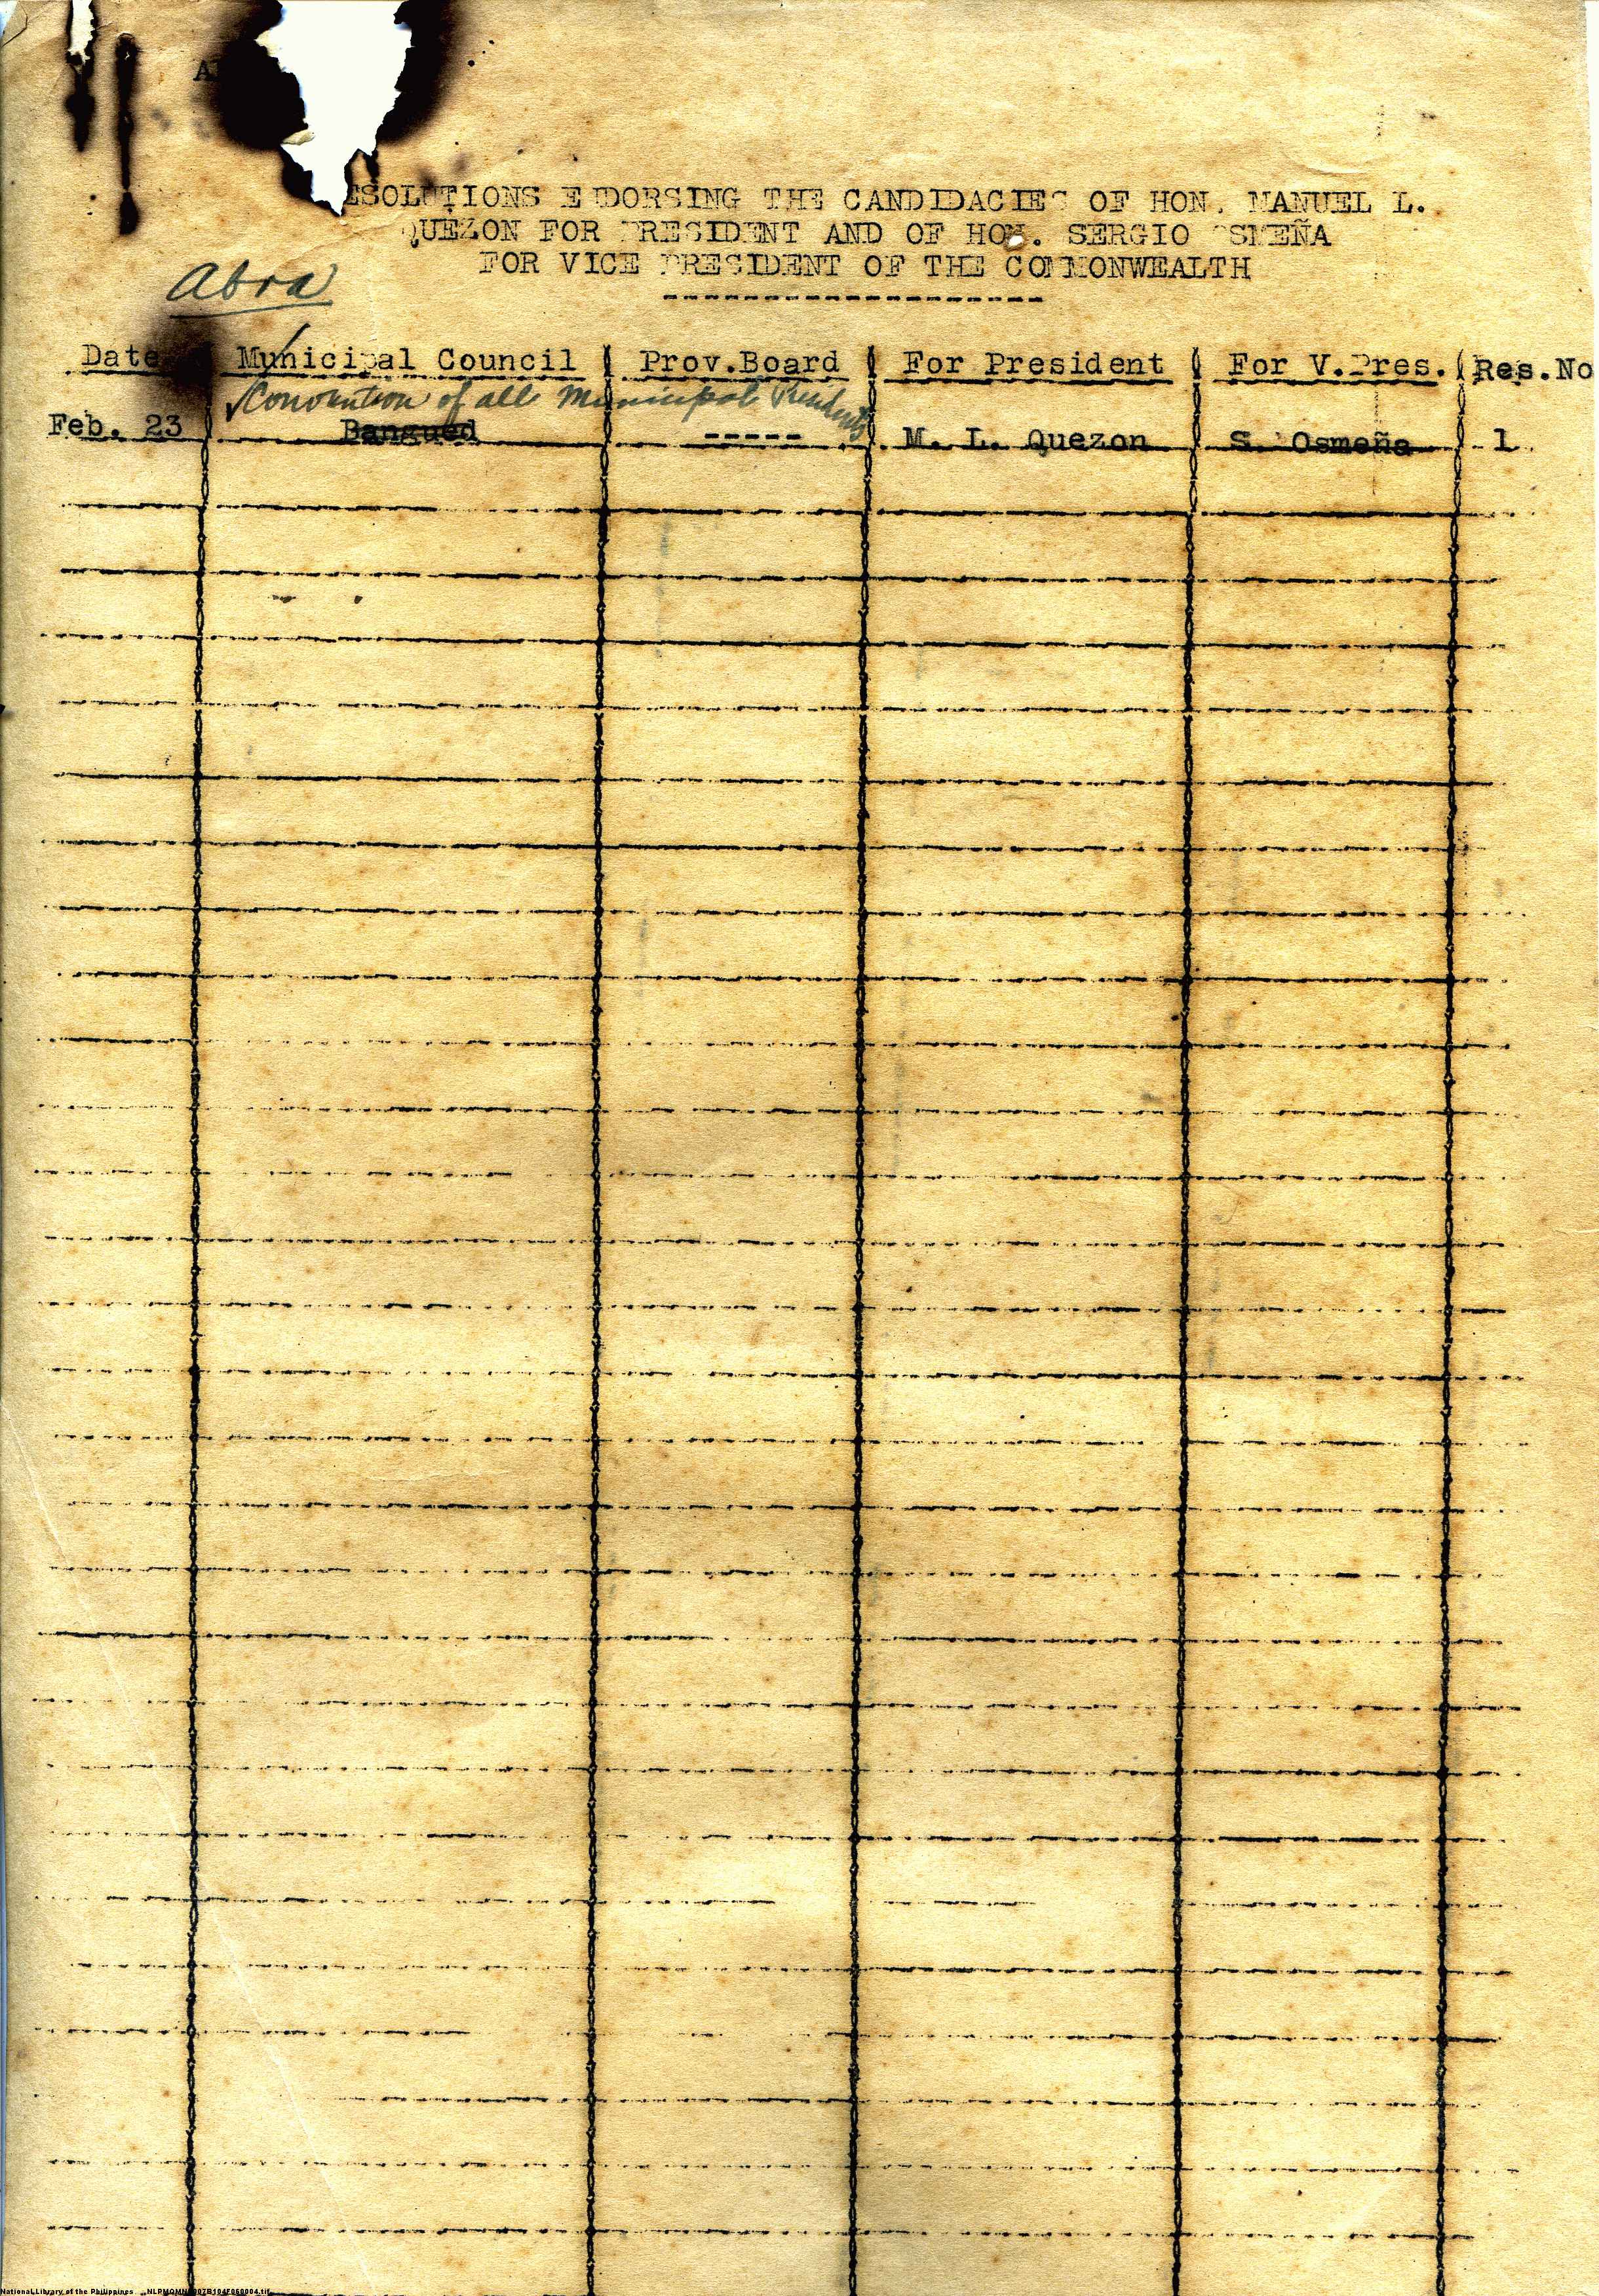 ESOLUTIONS E DORSING THE CANDIDACIES OF HON. MANUEL L.
QUEZON FOR PRESIDENT AND OF HON. SERGIO OSMEÑA
FOR VICE PRESIDENT OF THE COMMONWEALTH
Abra
Date Municipal Council Prov.Board For President For V.Pres. Res.No
Convention of all Municipal Presidents
Feb. 23 Bangued ----- M. L. Quezon S. Osmeña 1
National Library of the Philippines